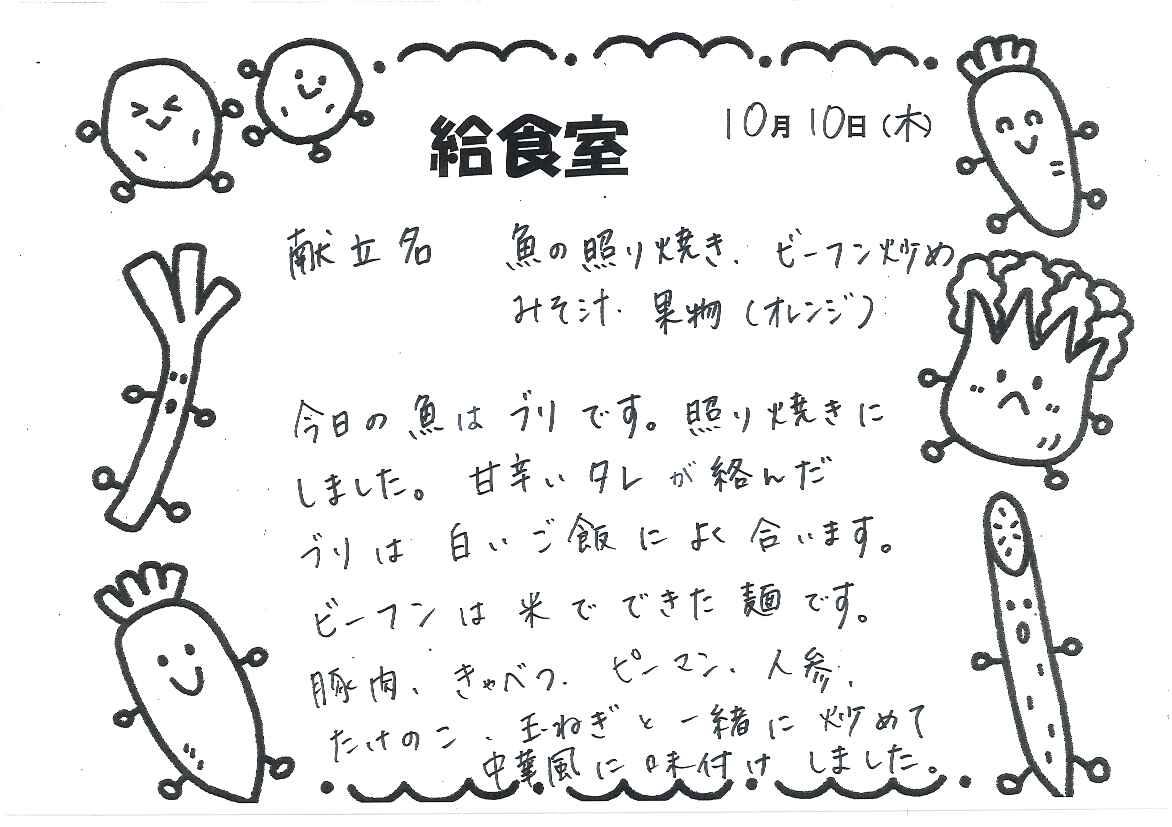 給食室
10月10日(木)
献立名 魚の照り焼き、ビーフン炒め
みそ汁、果物(オレンジ)
今日の魚はブリです。照り焼きに
しました。甘辛いタレが絡んだ
ブリは白いご飯によく合います。
ビーフンは米でできた麺です。
豚肉、きゃべつ、ピーマン、人参、
たけのこ、玉ねぎと一緒に炒めて
中華風に味付けしました。